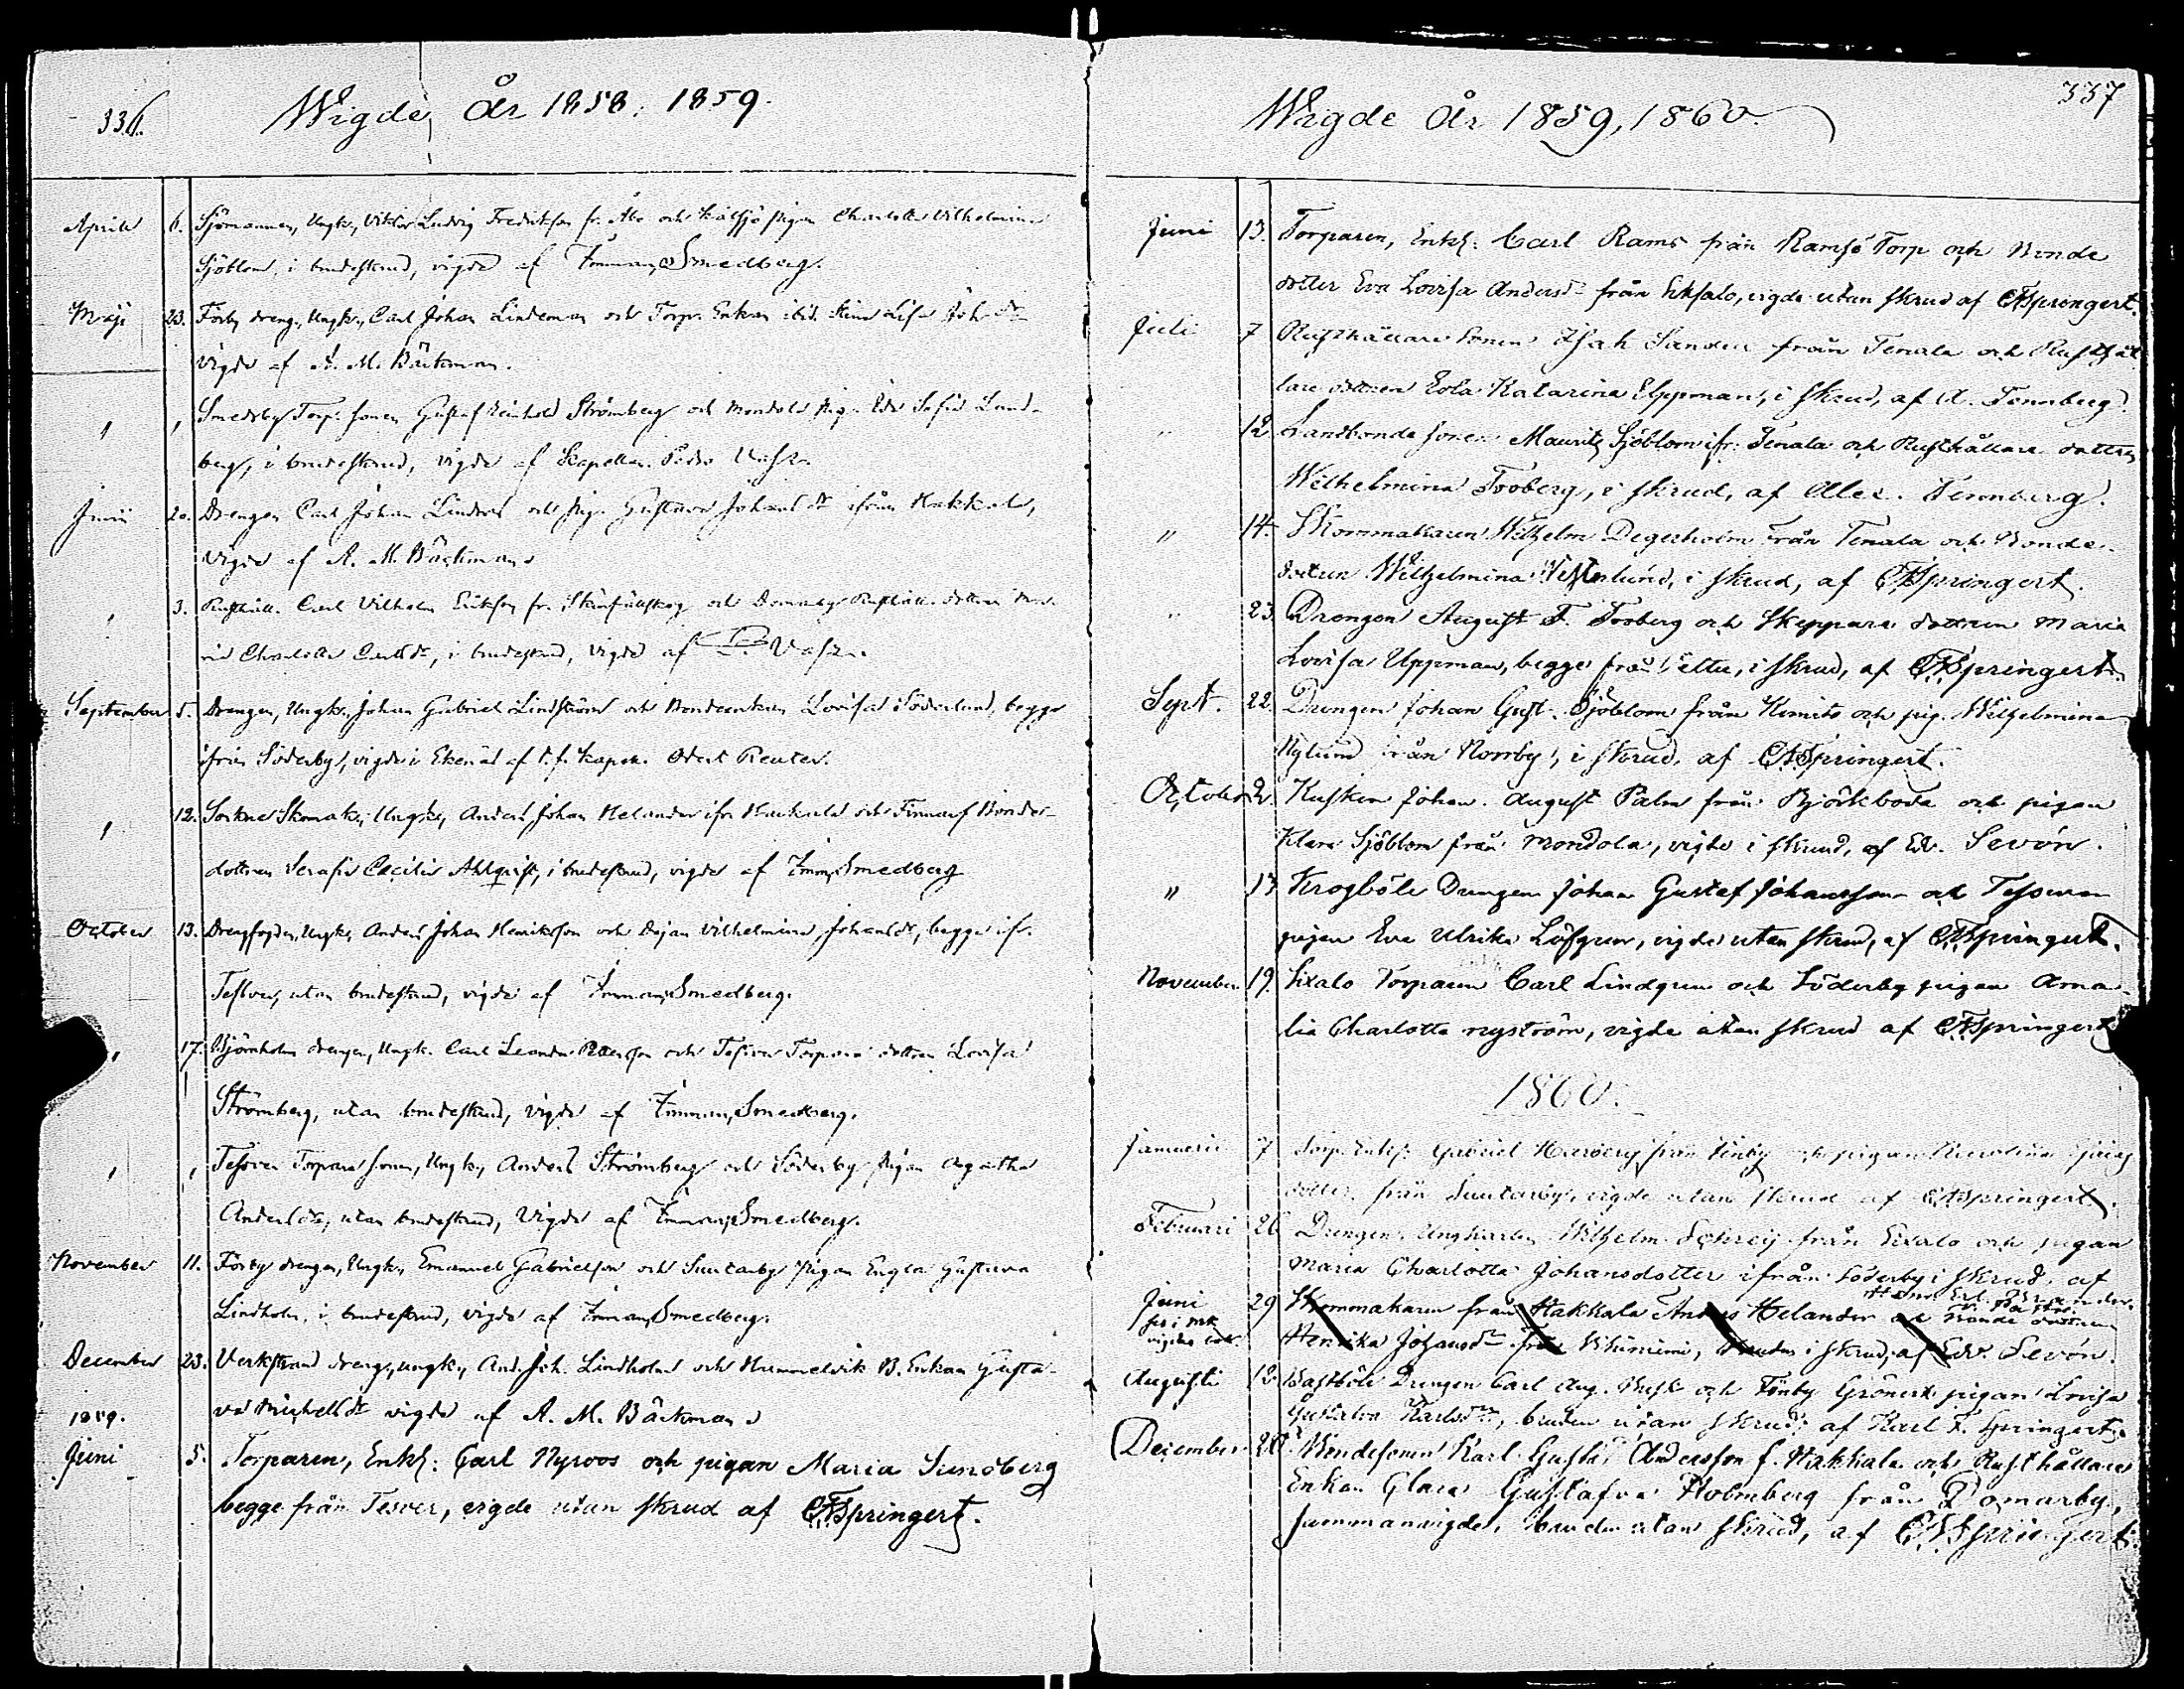 336.
Wigde, år 1858. 1859.
Aprill 6. Sjömannen, Ungk., Viktor Ludvig Fredriksson fr. Åbo och pigan Charlotta Vilhelmina
Sjöblom, i brudeskrud, vigde af Imman. Smedberg.
Maji 23. Förby dreng., Ungk., Carl Johan Lindeman och Torp. Enkan ibid. Stina Lisa Joh. dr
vigde af A. M. Bäckman.
" " Smedsby Torp. sonen Gustaf Reinhold Strömberg och Mondola pig. Eva Sofia Lund-
berg, i brudeskrud, vigde af Kapellan
Junii 20. Drengen Carl Johan Lindros och pig. Gustava Johans dr ifrån Hakkala,
vigde af A. M. Bäckman
" 3. Rusthåll. Carl Vilhelm Erikson fr. och Domarby Rusthåll. dottren
Charlotta Carls dr, i brudeskrud, vigde af
September 5. Drengen, Ungk., Johan Gabriel Lindström och Bondeenkan Lovisa Söderlund, begge
ifrån Söderby, vigde i Ekenäs af t.f. Kapell. Odert Reuter.
" 12. Sockne Skomak., Ungk., Anders Johan Helander ifr. Hakkala och Finnarf Bonde-
dottren Serafia Cecilia Ahlqvist, i brudeskrud, vigde af Imm. Smedberg
October 13. Drengfogden, Ungk., Anders Johan Henriksson och Dejan Vilhelmina Johans dr, begge ifr.
Tessver, utan brudeskrud, vigde af Imman. Smedberg.
" 17. Björnholm drengen, Ungk. Carl Leander Petersson och Tesver Torpare dottren Lovisa
Strömberg, utan brudeskrud, vigde af Imman. Smedberg.
" " Tesver Torpare sonen, Ungk., Anders Strömberg och Söderby pigan Agatha
Anders dr, utan brudeskrud, vigde af Imman. Smedberg.
November 11. Förby drengen, Ungk., Emanuel Gabrielsson och Suutarby pigan Engla Gustava
Lindholm, i brudeskrud, vigde af Imman. Smedberg.
December 23. Verkstrand dreng., ungk., And. Joh. Lindholm och Hummelvik B. Enkan Gusta-
va Michels dr vigde af A. M. Bäckman
1859.
Juni 5. Torparen, Enkl: Carl Nyroos och pigan Maria Sundberg
begge från Tesver, vigde utan skrud af CFSpringert.
337
Wigde år 1859, 1860.
Juni 13. Torparen, Enkl: Carl Rams från Ramsö Torp och Bonde
dotter Eva Lovisa Anders dr från Eksalo, vigde utan skrud af CFSpringert.
Juli 7 Rusthållare sonen Isak Sandell från Tenala och Rusthål
lare dottren Eola Katarina Uppman, i skrud, af A. Tennberg.
" 12 Landbonde sonen Mauritz Sjöblom ifr. Tenala och Rusthållare dottren
Wilhelmina Tooberg, i skrud, af Alex. Tennberg.
" 14. Skommakaren Wilhelm Degerholm från Tenala och Bonde
dottren Wilhelmina Westerlund, i skrud, af CFSpringert.
" 23. Drengen August F. Tooberg och Skeppare dottren Maria
Lovisa Uppman, begge från, i skrud, af CFSpringert.
Sept. 22. Drengen Johan Gust. Sjöblom från Kimito och pig. Wilhelmina
Nylund från Norrby, i skrud, af CFSpringert.
October 2. Kusken Johan August Palm från Björkboda och pigan
Klara Sjöblom från Mondola, vigde i skrud, af Edv. Sevón.
" 17 Krogböle Drengen Johan Gustaf Johansson och Tesver
pigan Eva Ulrika Löfgren, vigde utan skrud, af CFSpringert.
November 19. Eixalo Torparen Carl Lindgren och Söderby pigan Ama-
lia Charlotta nyström, vigde utan skrud af CFSpringert
1860.
Januari 7 Torp. Enkl: Gabriel från Finby och pigan
dotter från Suutarby, vigde utan skrud af CFSpringert.
Februari 26 Drengen Ungkarlen Wilhelm från Eixalo och pigan
Maria Charlotta Johansdotter ifrån Söderby i skrud, af
Juni 29 Skommakaren från Hakkala Anders Helander och Bonde dottren
Henrika Johans dr från, bruden i skrud, af Edv. Sevón.
Augusti 12. Bastböle Drengen Carl Aug. Busk och Finby pigan Lovisa
Gustafva Karls dr, bruden utan skrud, af Karl F. Springert.
December 26. Bondesonen Karl Gustaf Andersson f. Hakkala och Rusthållare
Enkan Clara Gustafva Holmberg från Domarby,
sammanvigde, bruden utan skrud, af CFSpringert.